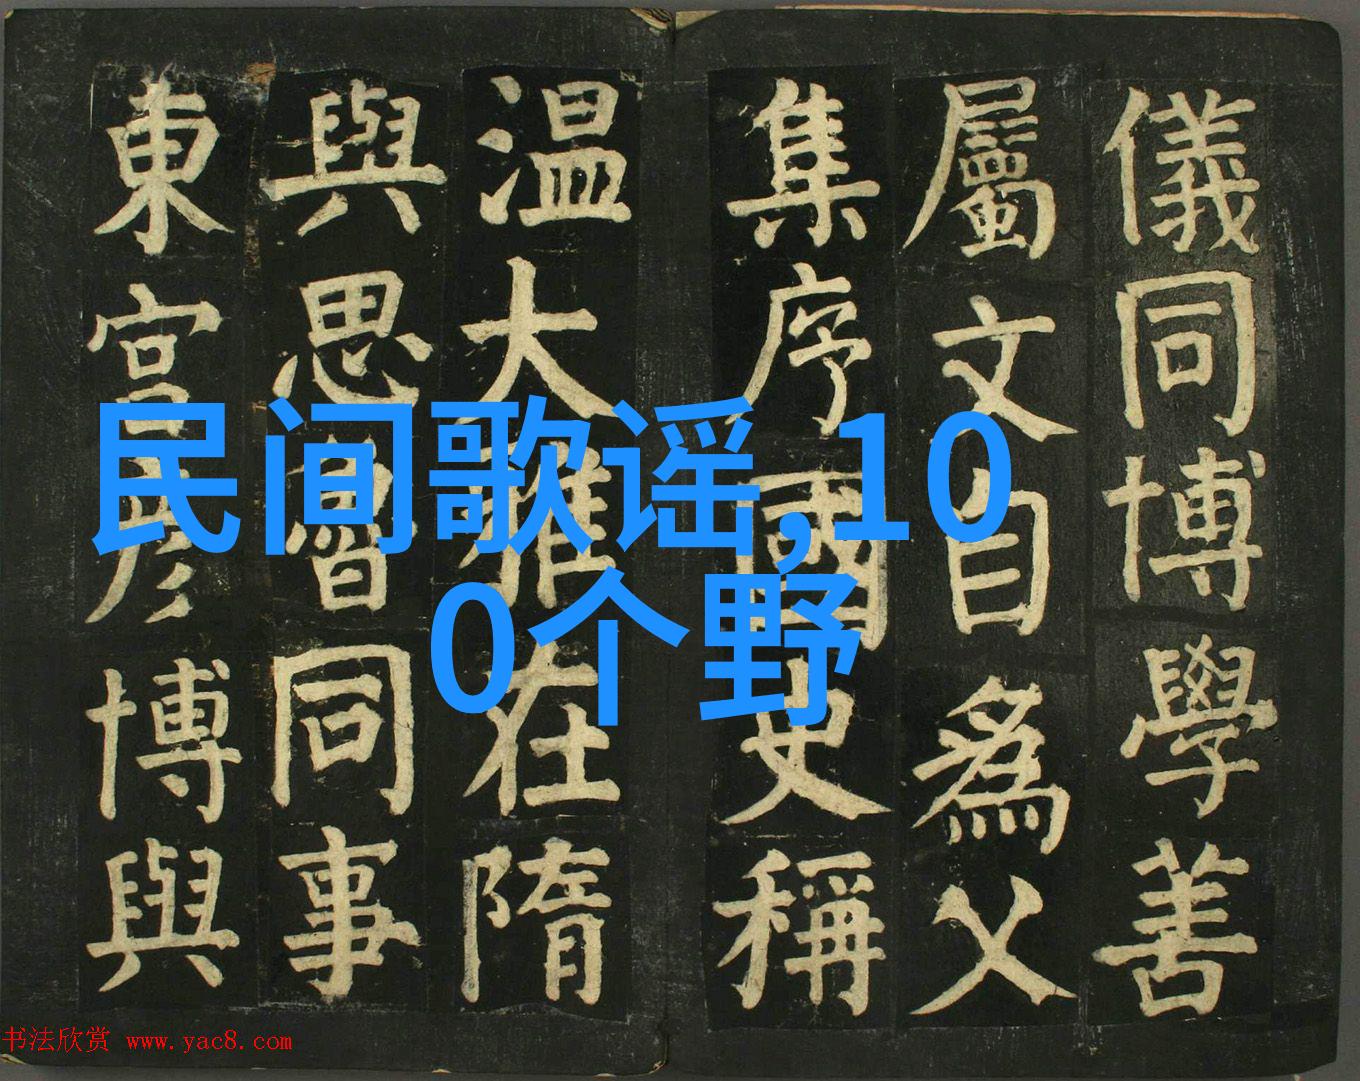 儀同博學善
屬文自為父
集序國史稱
温大雅在隋
與思魯同事
東宮彥博與
民间歌谣,10
0个野
书法欣赏 www.yac8.com